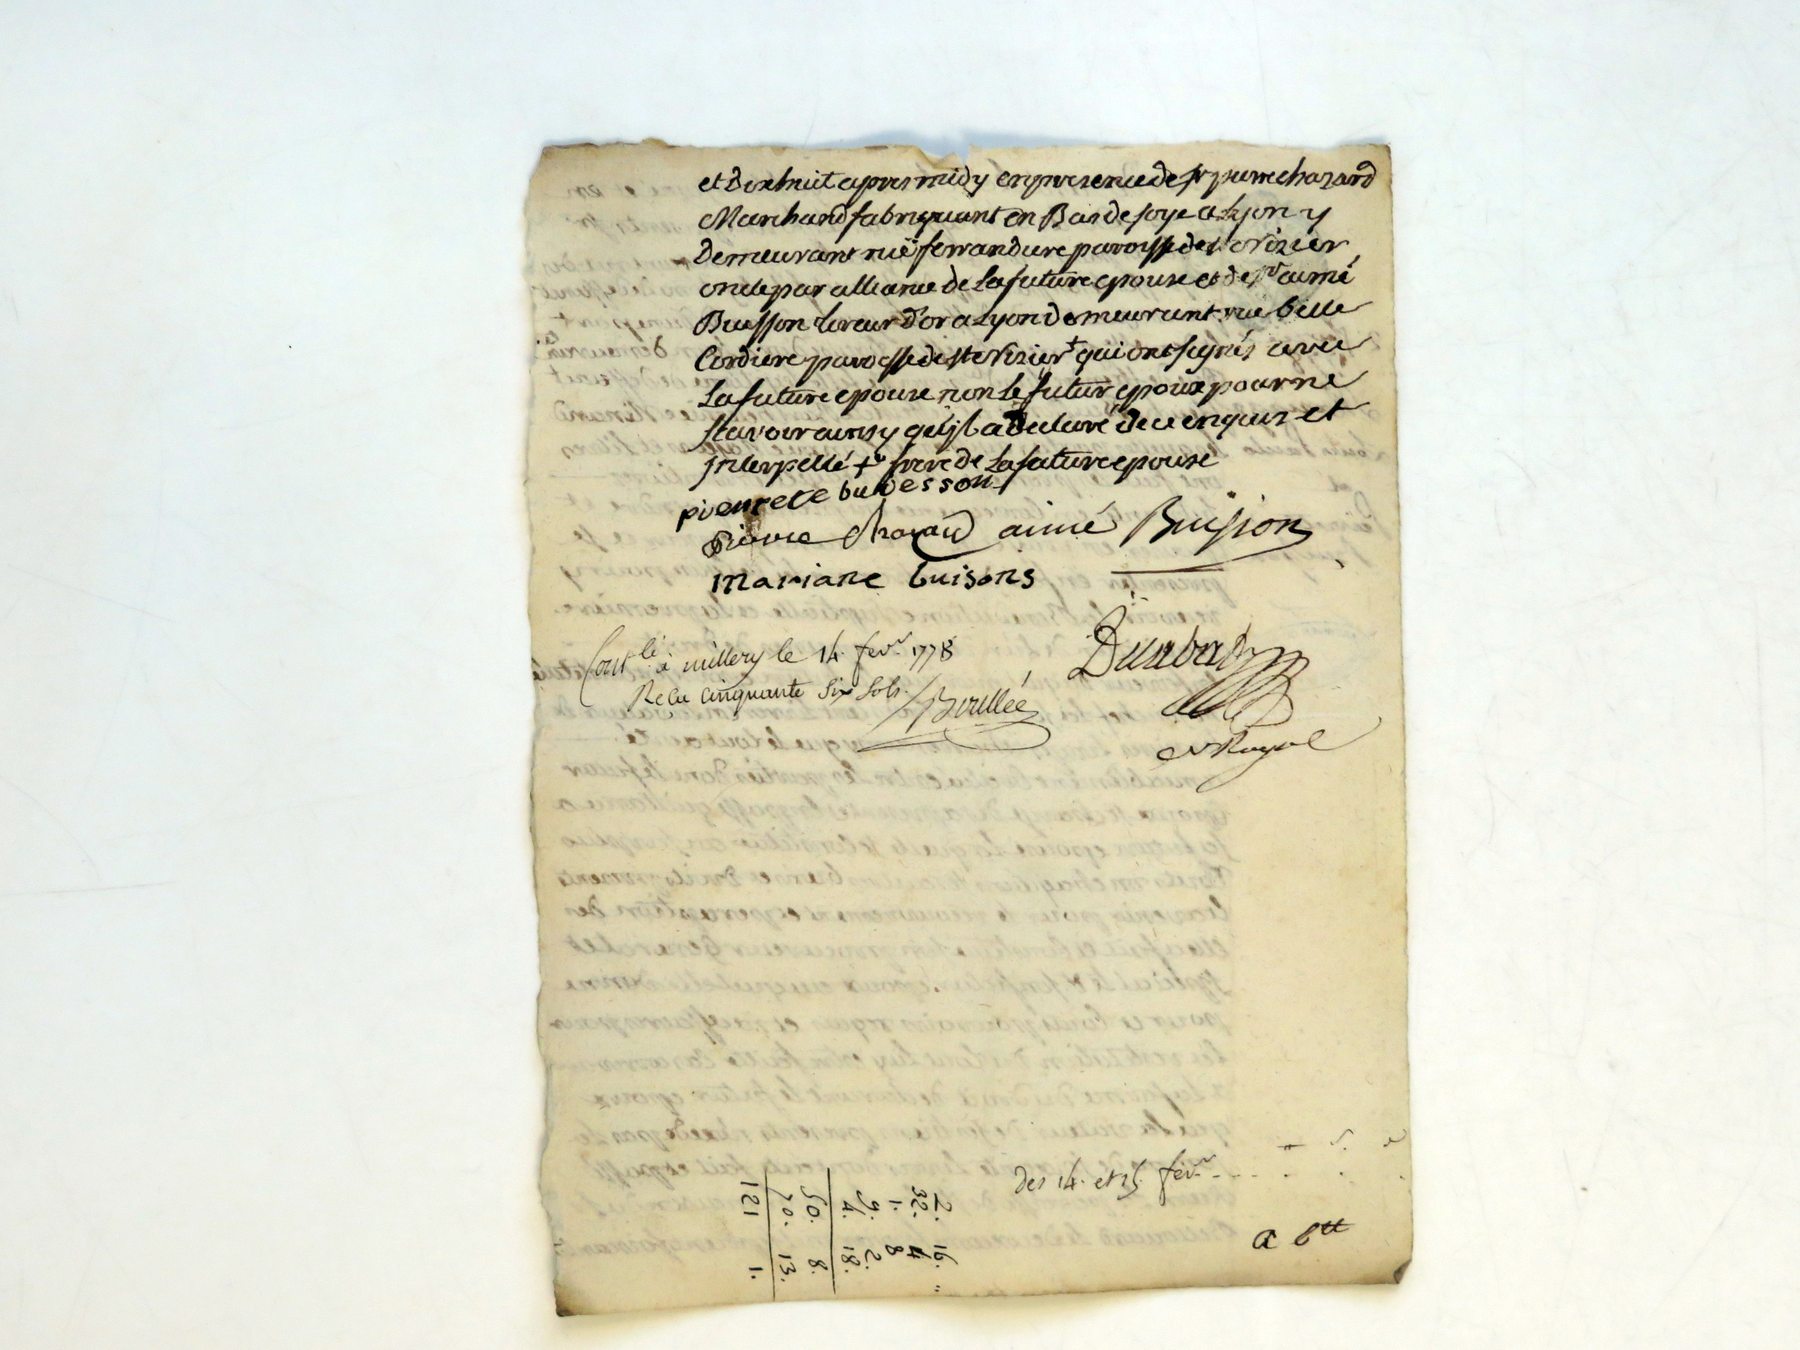 et dixhuit apres midy en presence de sr pierre chazard
Marchand fabriquant en Bas de soye a Lyon y
demeurant ruë ferrandiere paroisse de st Nizier
oncle par alliance de la future epouse et de sr aimé
Buisson tireur d'or a Lyon demeurant ruë belle
Cordiere paroisse de st Nizier + qui ont signés avec
la future epouse non le futur epoux pour ne
scavoir ainsy qu'jl a declaré de ce enquis et
jnterpellé + frere de la future epouse
pierrete buiesson
pierre Chazard aimé Buisson
mariane buisons
Contlé à millery le 14 fevr. 1778
Reçu cinquante six sols. Boullée
Nre Royal
des 14. et 15. fevr.
a 6tt
2. 16. "
32. 4
1. 8
9. 2.
4. 18.
50. 8.
70. 13.
121 1.